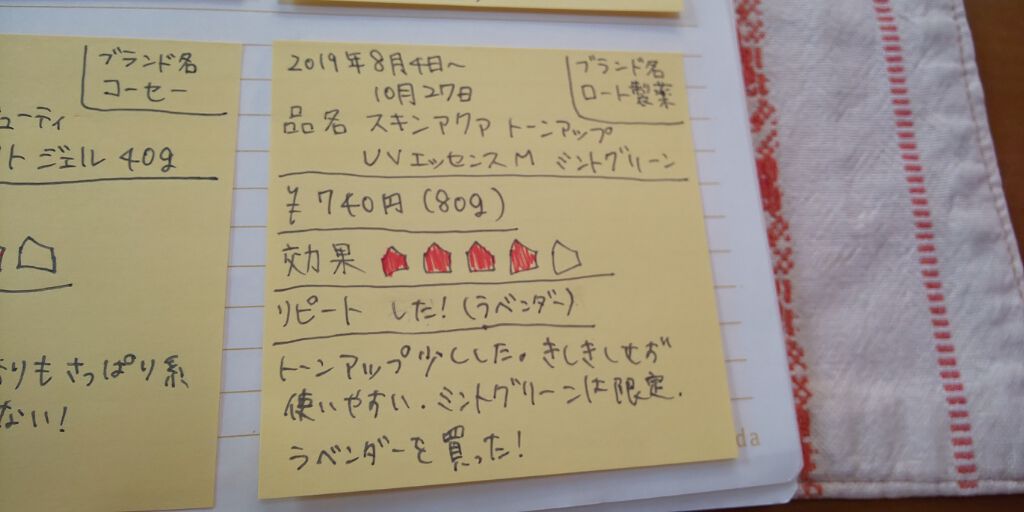 ブランド名
コーセー
ューティ
ト ジェル 40g
りも さっぱり系
ない!
2019年8月4日~
10月27日
ブランド名
ロート製薬
品名 スキンアクア トーンアップ
UVエッセンスM ミントグリーン
¥ 740円 (80g)
効果
リピート した! (ラベンダー)
トーンアップ少しした。きしきしせず
使いやすい. ミントグリーンは限定.
ラベンダーを買った!
da